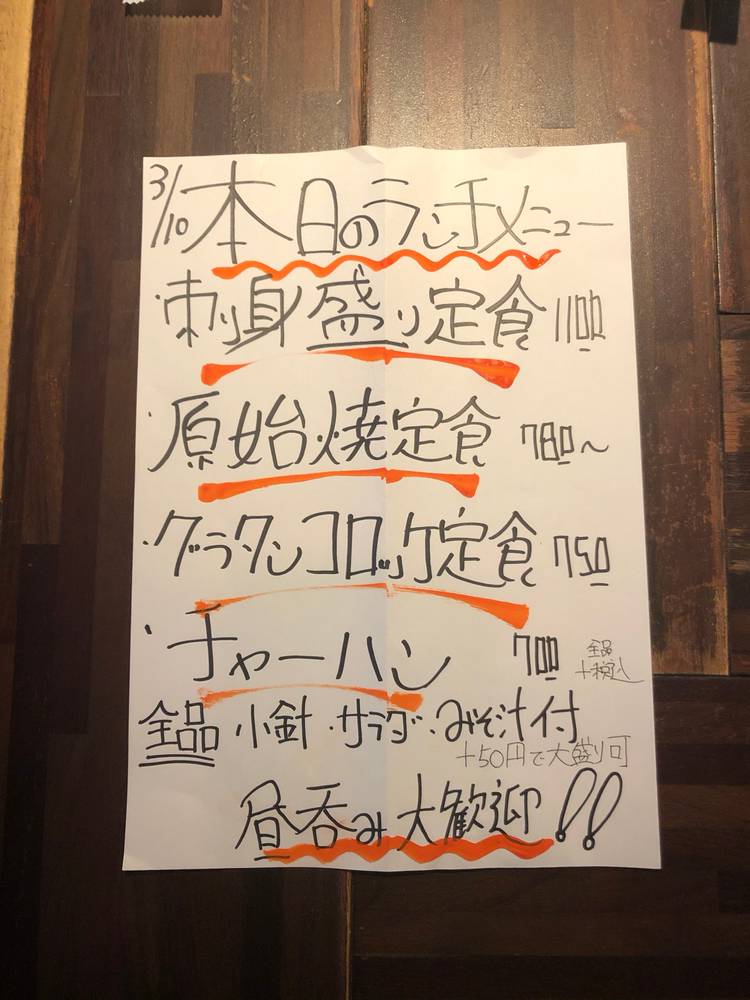 3/10 本日のランチメニュー
・刺身盛り定食 1100
・原始焼定食 780〜
・グラタンコロッケ定食 750
・チャーハン 700 全品
+税込
全品 小針・サラダ・みそ汁付
+50円で大盛り可
昼呑み大歓迎!!